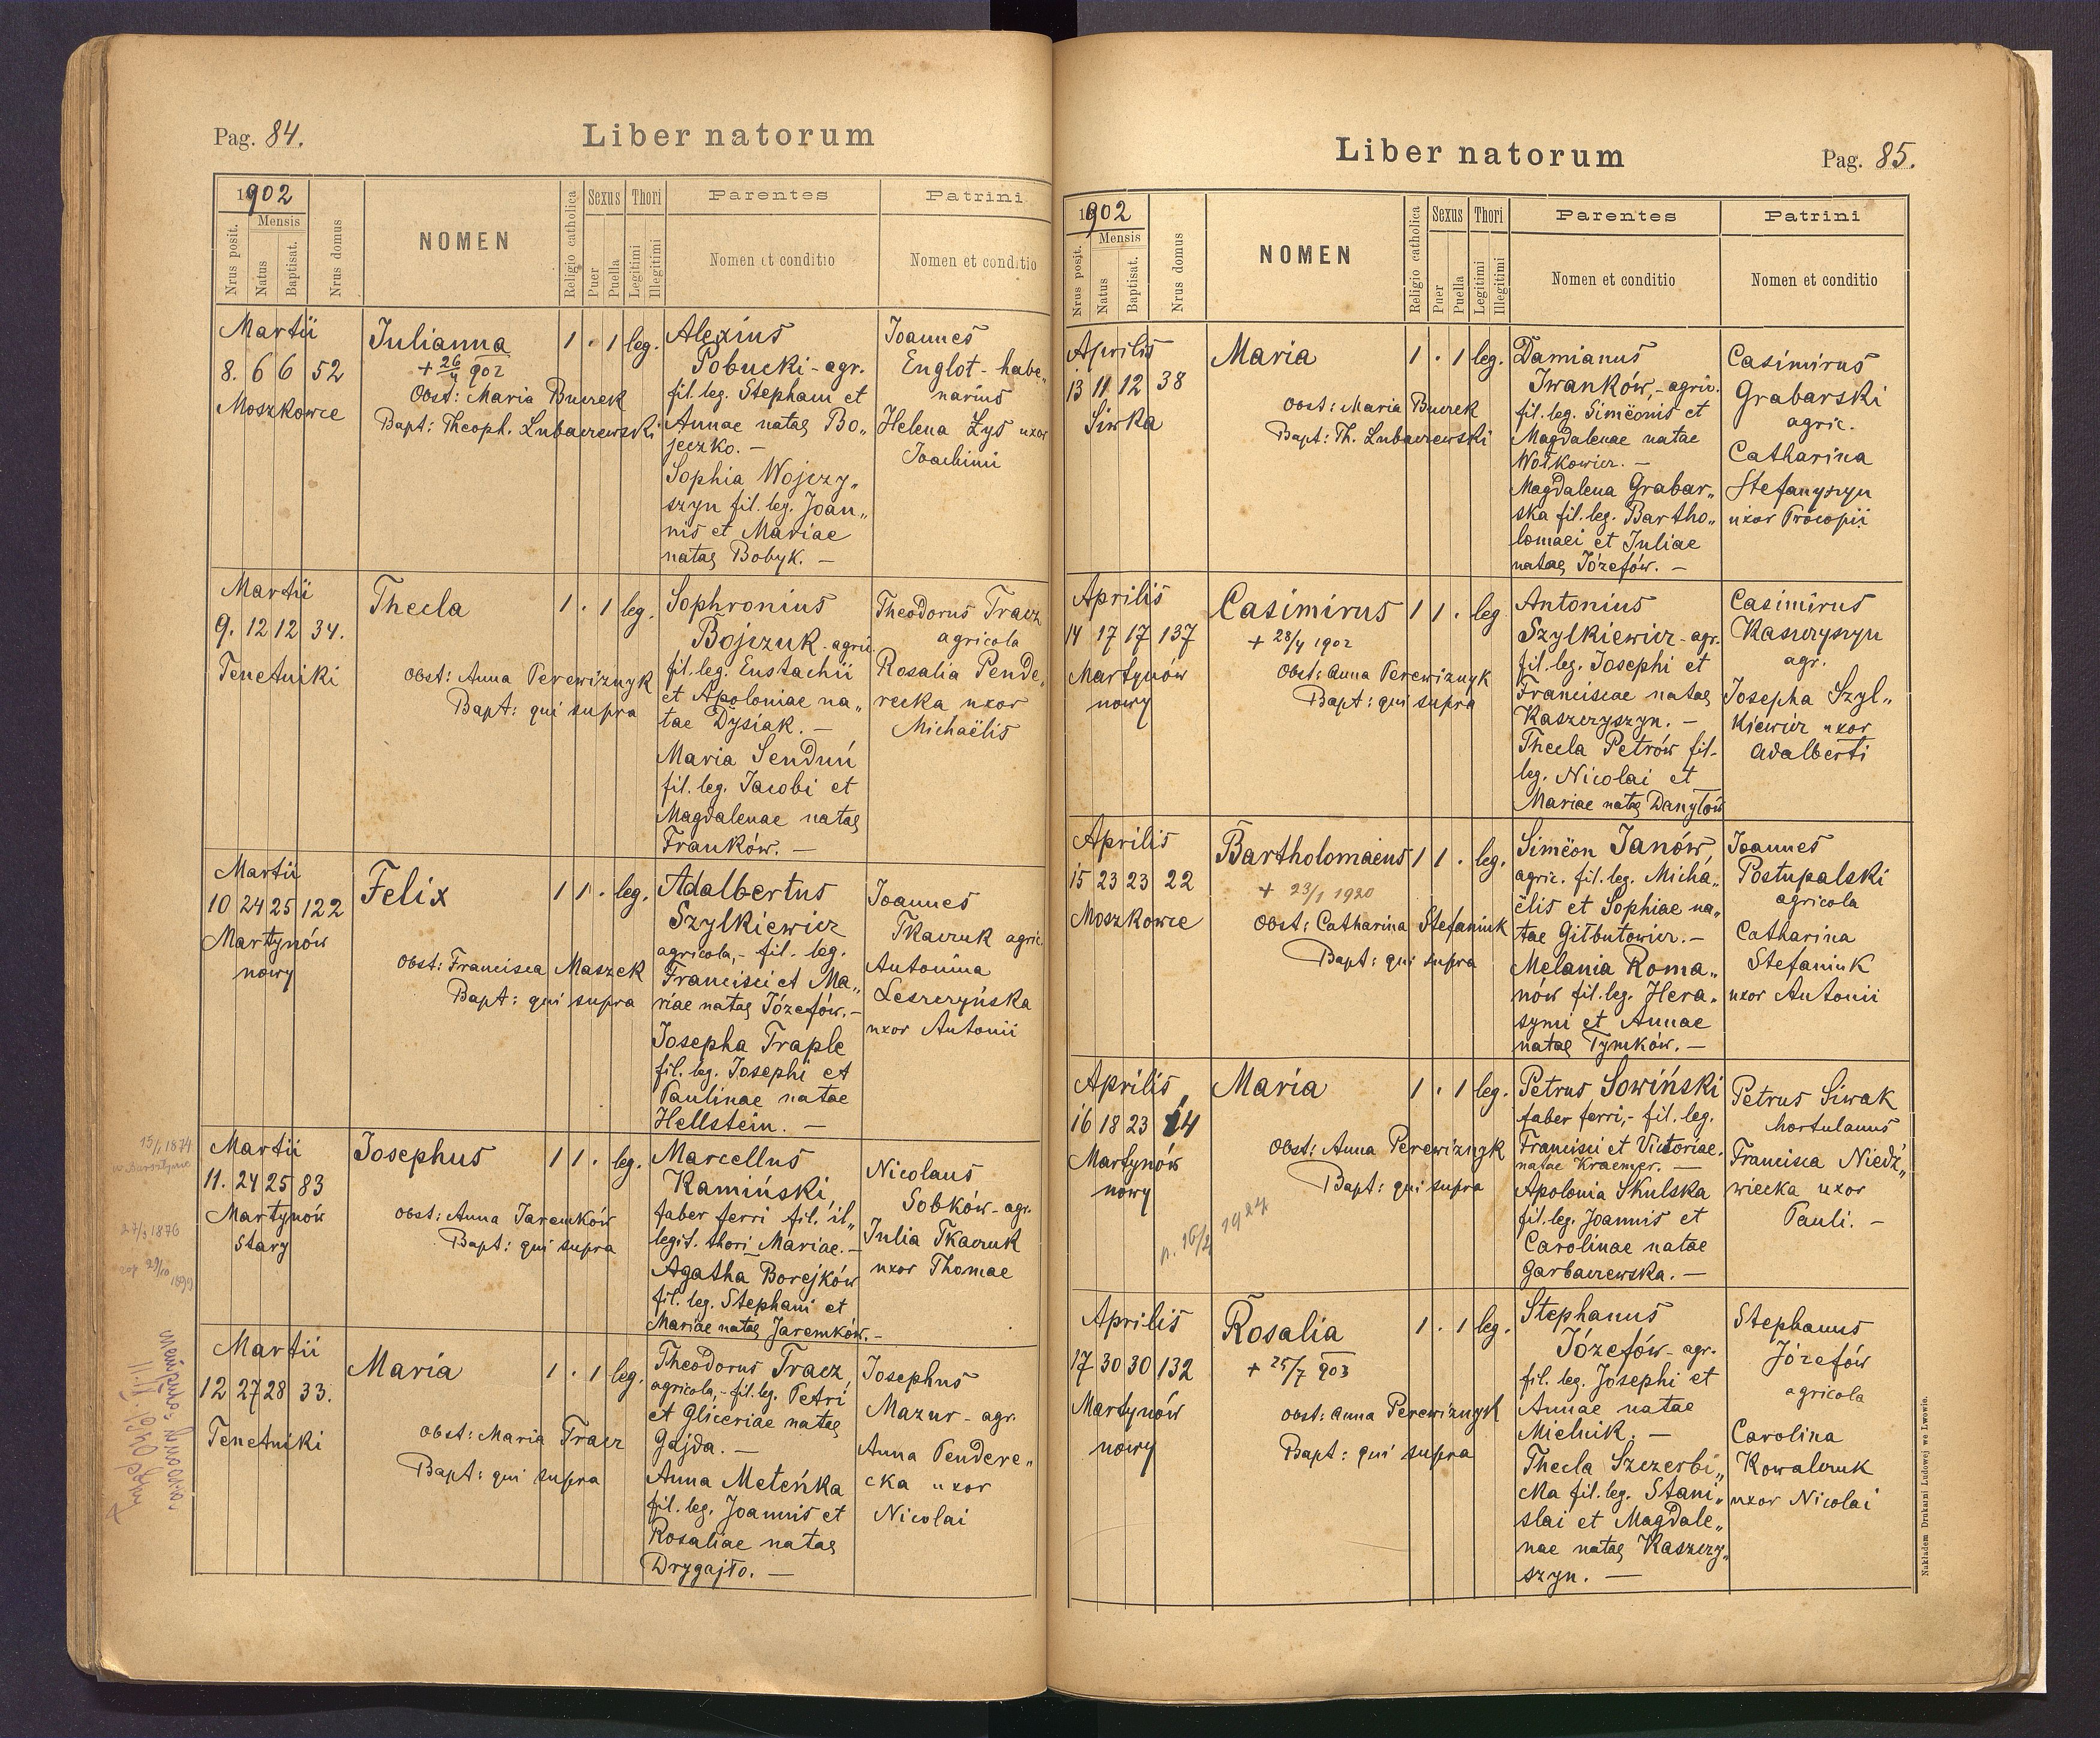 Pag. 84.
Liber natorum
1902
Nrus posit.
Mensis
Natus
Baptisat.
Nrus domus
NOMEN
Religio catholica
Sexus
Puer
Puella
Thori
Legitimi
Illegitimi
Parentes
Nomen et conditio
Patrini
Nomen et conditio
Martii
8. 6 6 52
Moszkowce
Julianna
+ 26/4 902
Obst: Maria Buczek
Bapt: Theoph. Lubaczewski
1 . 1 leg.
Alexius
Pobucki - agr.
fil. leg. Stephani et
Annae natae Bo„
jeczko. —
Sophia Wojczy„
szyn fil. leg. Joan„
nis et Mariae
natae Bobyk. —
Joannes
Englot - habe„
narius
Helena Łys uxor
Joachimi
Martii
9. 12 12 34.
Tenetniki
Thecla
Obst: Anna Perewiznyk
Bapt: qui supra
1 . 1 leg.
Sophronius
Bojczuk - agric.
fil. leg. Eustachii
et Apoloniae na„
tae Dysiak. —
Maria Senduń
fil. leg. Jacobi et
Magdalenae natae
Franków. —
Theodorus Tracz
agricola
Rosalia Pende„
recka uxor
Michaëlis
Martii
10 24 25 122
Martynów
nowy
Felix
Obst: Francisca Maszek
Bapt: qui supra
1 1 . leg.
Adalbertus
Szylkiewicz
agricola, - fil. leg.
Francisci et Ma„
riae natae Józefów. —
Josepha Traple
fil. leg. Josephi et
Paulinae natae
Hellstein. —
Joannes
Tkaczuk agric.
Antonina
Leszczyńska
uxor Antonii
15/1 1874
27/3 1876
29/10 1899
Martii
11. 24 25 83
Martynów
Stary
Josephus
Obst: Anna Jaremków
Bapt: qui supra
1 1 . leg.
Marcellus
Kamiński,
faber ferri fil. il„
legit. thori Mariae. —
Agatha Borejków
fil. leg. Stephani et
Mariae natae Jaremków. —
Nicolaus
Sobków - agr.
Julia Tkaczuk
uxor Thomae
Martii
12 27 28 33.
Tenetniki
Maria
Obst: Maria Tracz
Bapt: qui supra
1 . 1 leg.
Theodorus Tracz,
agricola, - fil. leg. Petri
et Gliceriae natae
Gajda. —
Anna Meteńka
fil. leg. Joannis et
Rosaliae natae
Drygajło. —
Josephus
Mazur - agr.
Anna Pendere„
cka uxor
Nicolai
Liber natorum
Pag. 85.
1902
Nrus posit.
Mensis
Natus
Baptisat.
Nrus domus
NOMEN
Religio catholica
Sexus
Puer
Puella
Thori
Legitimi
Illegitimi
Parentes
Nomen et conditio
Patrini
Nomen et conditio
Aprilis
13 11 12 38
Siwka
Maria
Obst: Maria Buczek
Bapt: Th. Lubaczewski
1 . 1 leg.
Damianus
Iwanków, - agric.
fil. leg. Simeonis et
Magdalenae natae
Wołkowicz. —
Magdalena Grabar„
ska fil. leg. Bartho„
lomaei et Juliae
natae Józefów. —
Casimirus
Grabarski
agric.
Catharina
Stefanyszyn
uxor Procopii
Aprilis
14 17 17 137
Martynów
nowy
Casimirus
+ 28/4 1902
Obst: Anna Perewiznyk
Bapt: qui supra
1 1 . leg
Antonius
Szylkiewicz - agr.
fil. leg. Josephi et
Franciscae natae
Kaszczyszyn. —
Thecla Petrów fil.
leg. Nicolai et
Mariae natae Danyłów
Casimirus
Kaszczyszyn
agr.
Josepha Szyl„
kiewicz uxor
Adalberti
Aprilis
15 23 23 22
Moszkowce
Bartholomaeus
+ 23/1 1920
Obst: Catharina Stefaniuk
Bapt: qui supra
1 1 . leg.
Simëon Janów,
agric. fil. leg. Micha„
ëlis et Sophiae na„
tae Gitbutowicz. —
Melania Roma„
nów fil. leg. Hera„
symi et Annae
natae Tymków. —
Joannes
Postupalski
agricola
Catharina
Stefaniuk
uxor Antonii
Aprilis
16 18 23 14
Martynów
nowy
1924
Maria
Obst: Anna Perewiznyk
Bapt: qui supra
1 . 1 leg.
Petrus Sowiński
faber ferri, - fil. leg.
Francisci et Victoriae
natae Kraemer. —
Apolonia Skulska
fil. leg. Joannis et
Carolinae natae
Garbaczewska. —
Petrus Siwak
hortulanus
Francisca Niedź„
wiecka uxor
Pauli. —
Aprilis
17 30 30 132
Martynów
nowy
Rosalia
+ 25/7 903
Obst: Anna Perewiznyk
Bapt: qui supra
1 . 1 leg.
Stephanus
Józefów - agr.
fil. leg. Josephi et
Annae natae
Mielnik. —
Thecla Szczerbi„
cka fil. leg. Stani„
slai et Magdale„
nae natae Kaszczy„
szyn. —
Stephanus
Józefów
agricola
Carolina
Kowalczuk
uxor Nicolai
Nakładem Drukarni Ludowej we Lwowie.